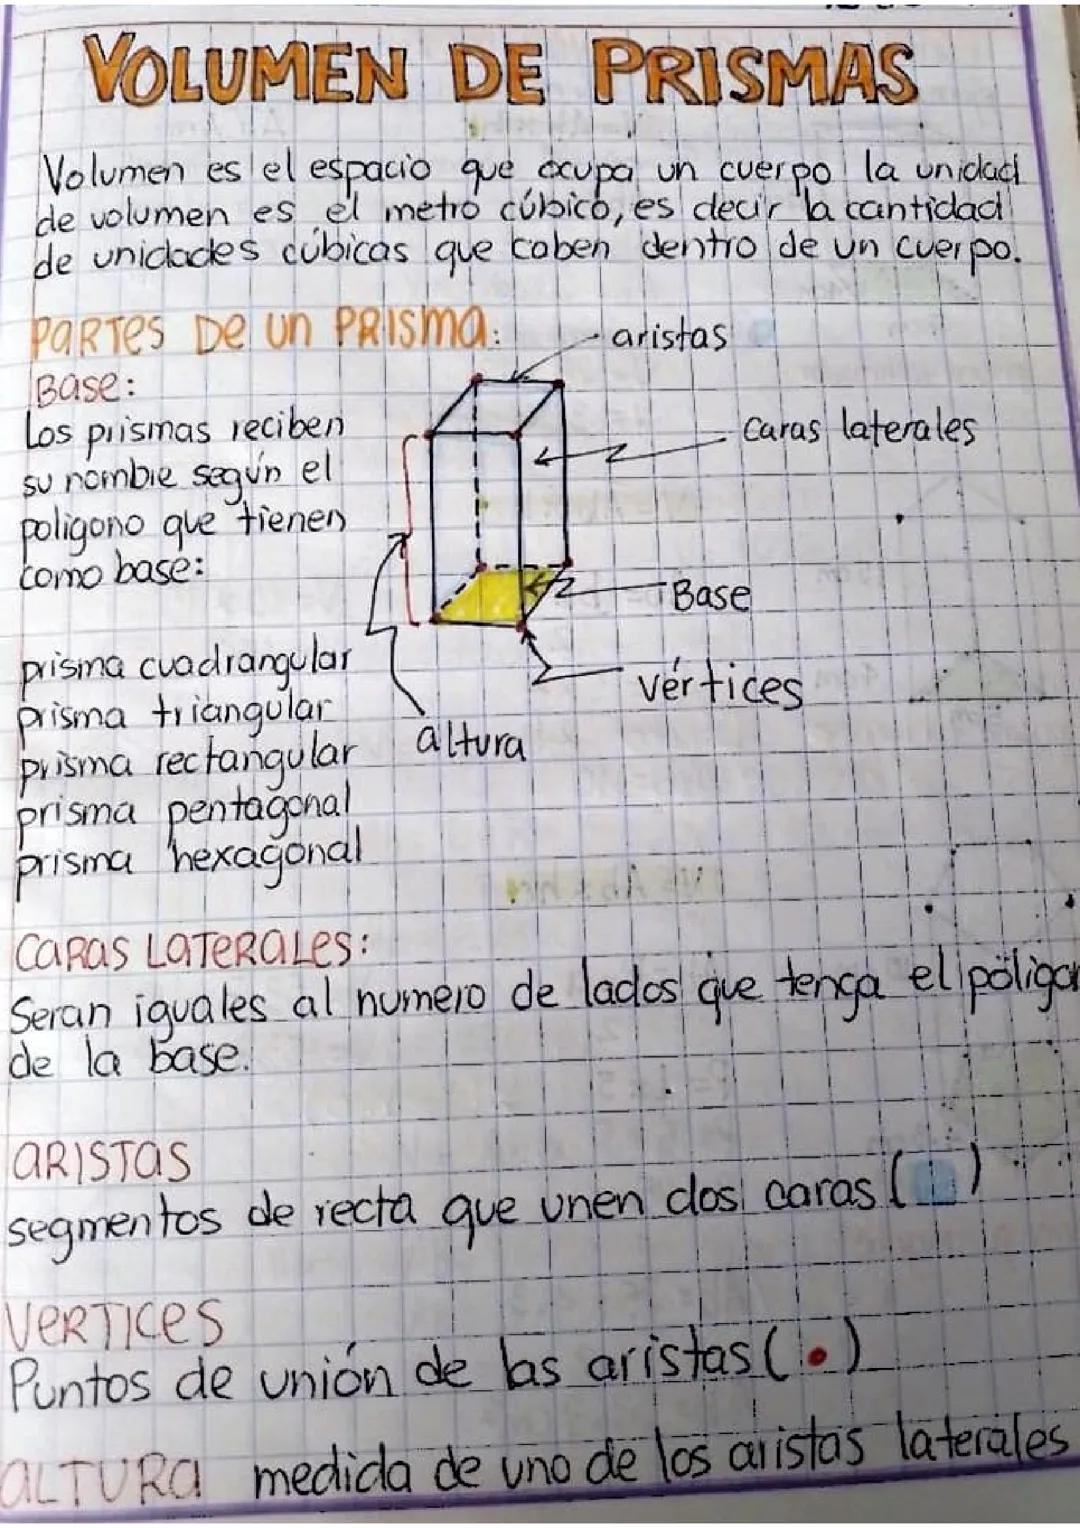 VOLUMEN DE PRISMAS
Volumen es el espacio que ocupa un cuerpo la unidad
de volumen es el metro cúbico, es decir la cantidad
de unidades cúbicas que caben dentro de un cuerpo.
PARTES De un PRISMA:
aristas
Base:
Los prismas reciben
su nombre según el
poligono que tienen
como base:
caras laterales
Base
vértices
altura
prisma cuadrangular
prisma triangular
prisma rectangular
prisma pentagonal
prisma hexagonal
CARAS LATERALES:
Seran iguales al numero de lados que tenga el póligon
de la base.
ARISTAS
segmentos de recta que unen dos caras ( )
VERTICES
Puntos de unión de las aristas ( • )
ALTURA medida de uno de los aristas laterales